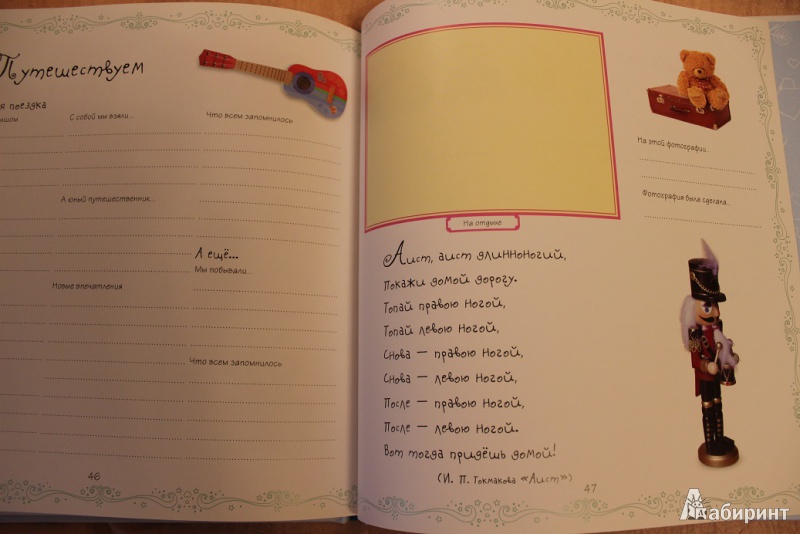 Путешествуем
я поездка
С собой мы взяли...
Что всем запомнилось
А юный путешественник...
А ещё...
Мы побывали...
Новые впечатления
Что всем запомнилось
46
На отдыхе
На этой фотографии...
Фотография была сделана...
Аист, аист длинноногий,
Покажи домой дорогу.
Топай правою ногой,
Топай левою ногой,
Снова — правою ногой,
Снова — левою ногой,
После — правою ногой,
После — левою ногой.
Вот тогда придёшь домой!
(И. П. Токмакова «Аист»)
47
Лабиринт